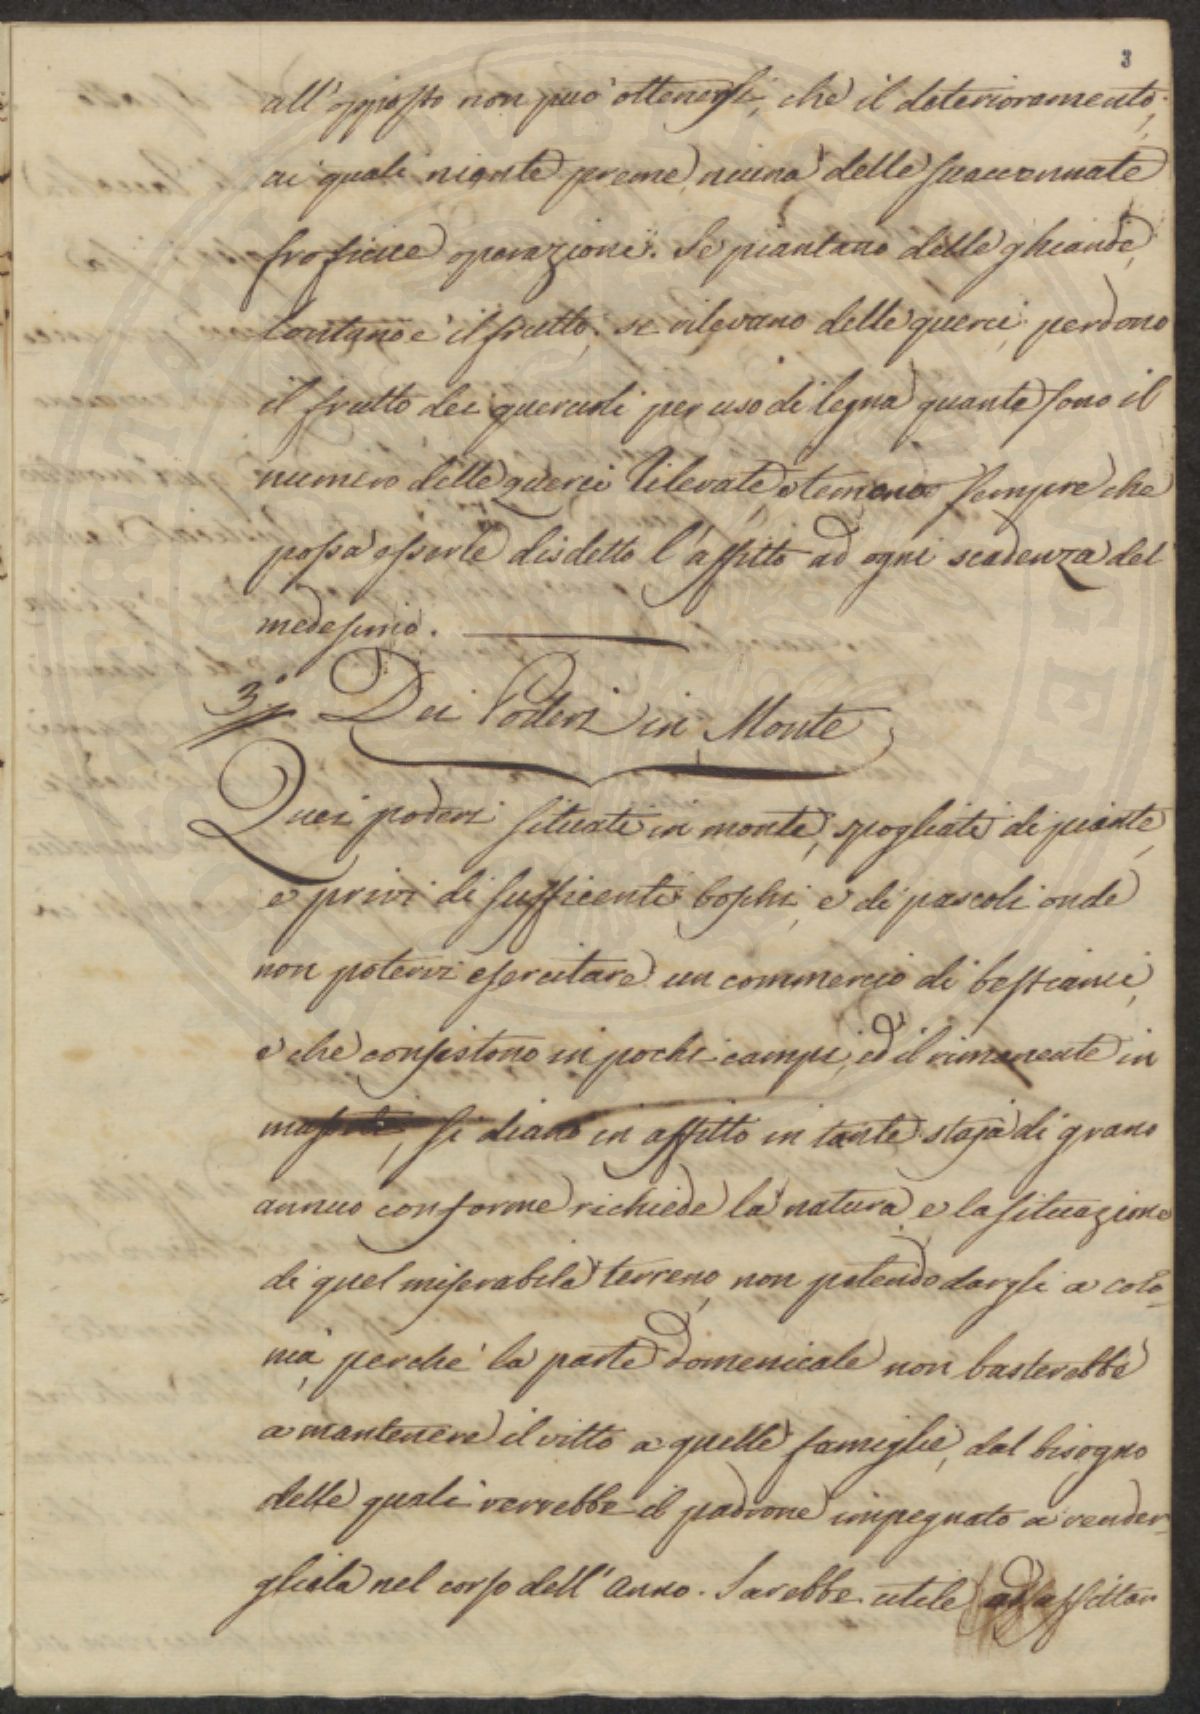 3
all'opposto non può ottenersi, che il deterioramento,
ai quali niente preme niuna delle suaccennate
proficue operazioni. Se piantano delle ghiande,
lontano è il frutto; se rilevano delle querci, perdono
il frutto dei querciuoli per uso di legna quante sono il
numero delle querci rilevate, e temono sempre che
possa esserle disdetto l'affitto ad ogni scadenza del
medesimo.
3.° Dei Poderi in Monte
Quei poderi situati in monte, spogliati di piante,
e privi di sufficenti boschi, e di pascoli onde
non potervi esercitare un commercio di bestiami,
e che consistono in pochi campi, ed il rimanente in
si diano in affitto in tante staja di grano
annuo conforme richiede la natura, e la situazione
di quel miserabile terreno, non potendo dargli a colo-
nia, perchè la parte domenicale non basterebbe
a mantenere il vitto a quelle famiglie, dal bisogno
delle quali verrebbe il padrone impegnato a vender-
gliela nel corso dell'Anno. Sarebbe utile ad affittar